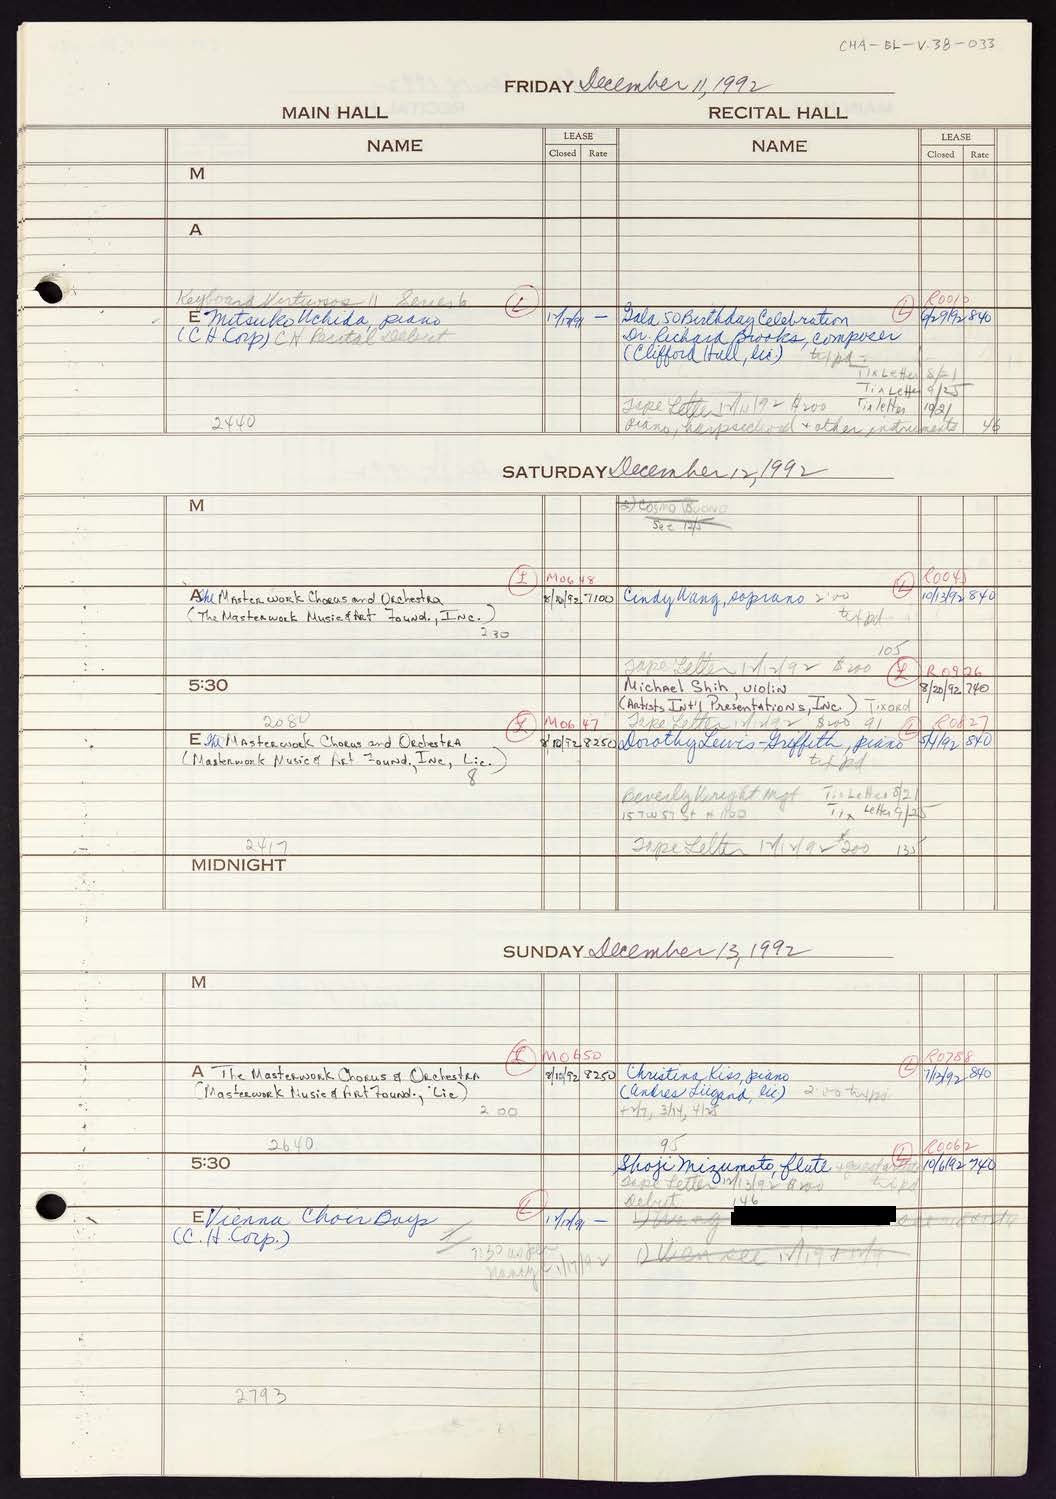 CHA-BL-V.38-033
FRIDAY December 11, 1992
MAIN HALL
RECITAL HALL
NAME
LEASE
Closed Rate
NAME
LEASE
Closed Rate
M
A
Keyboard Virtuosos II Series
L
E Mitsuko Uchida, piano
(C H Corp) CH Recital Debut
—
2440
R0010
L
Gala 50 Birthday Celebration 9/29/92 840
Dr. Richard Brooks, composer
(Clifford Hull, lic) tix pd
Tix Letter 8/21
Tix Letter 9/25
Tape Letter 12/11/92 $200 Tix letter 10/21
piano, harpsichord + other instruments 46
SATURDAY December 12, 1992
M
Cosmo Buono
See 12/5
L M0648
A The Masterwork Chorus and Orchestra 8/10/92 7100
(The Masterwork Music & Art Found., Inc.)
230
L R0045
Cindy Wang, soprano 2:00 10/13/92 840
tix pd
105
Tape Letter 12/12/92 $200
5:30
2080
L R0926
Michael Shih, violin 8/20/92 740
(Artists Int'l Presentations, Inc.) Tix ORD
Tape Letter 12/12/92 $200 91
L M0647
E The Masterwork Chorus and Orchestra 8/10/92 8250
(Masterwork Music & Art Found., Inc, Lic.)
8
2417
L R0827
Dorothy Lewis-Griffith, piano 5/4/92 840
tix pd
Beverly Wright Mgt Tix Letter 8/21
157 W 57 St # 1100 Tix Letter 9/25
Tape Letter 12/12/92 $200 135
MIDNIGHT
SUNDAY December 13, 1992
M
L M0650
A The Masterwork Chorus & Orchestra 8/10/92 8250
(Masterwork Music & Art Found., Lic)
2 00
2640
L R0788
Christina Kiss, piano 1/13/92 840
(Andres Liigand, lic) 2:00 tix pd
+ 2/7, 3/14, 4/25
95
5:30
L R0062
Shoji Mizumoto, flute 10/6/92 740
Tape Letter 12/13/92 $200 tix pd
Debut 146
L
E Vienna Choir Boys —
(C. H. Corp.)
7:30 as per
Nancy 1/17/92
see 12/19
2793